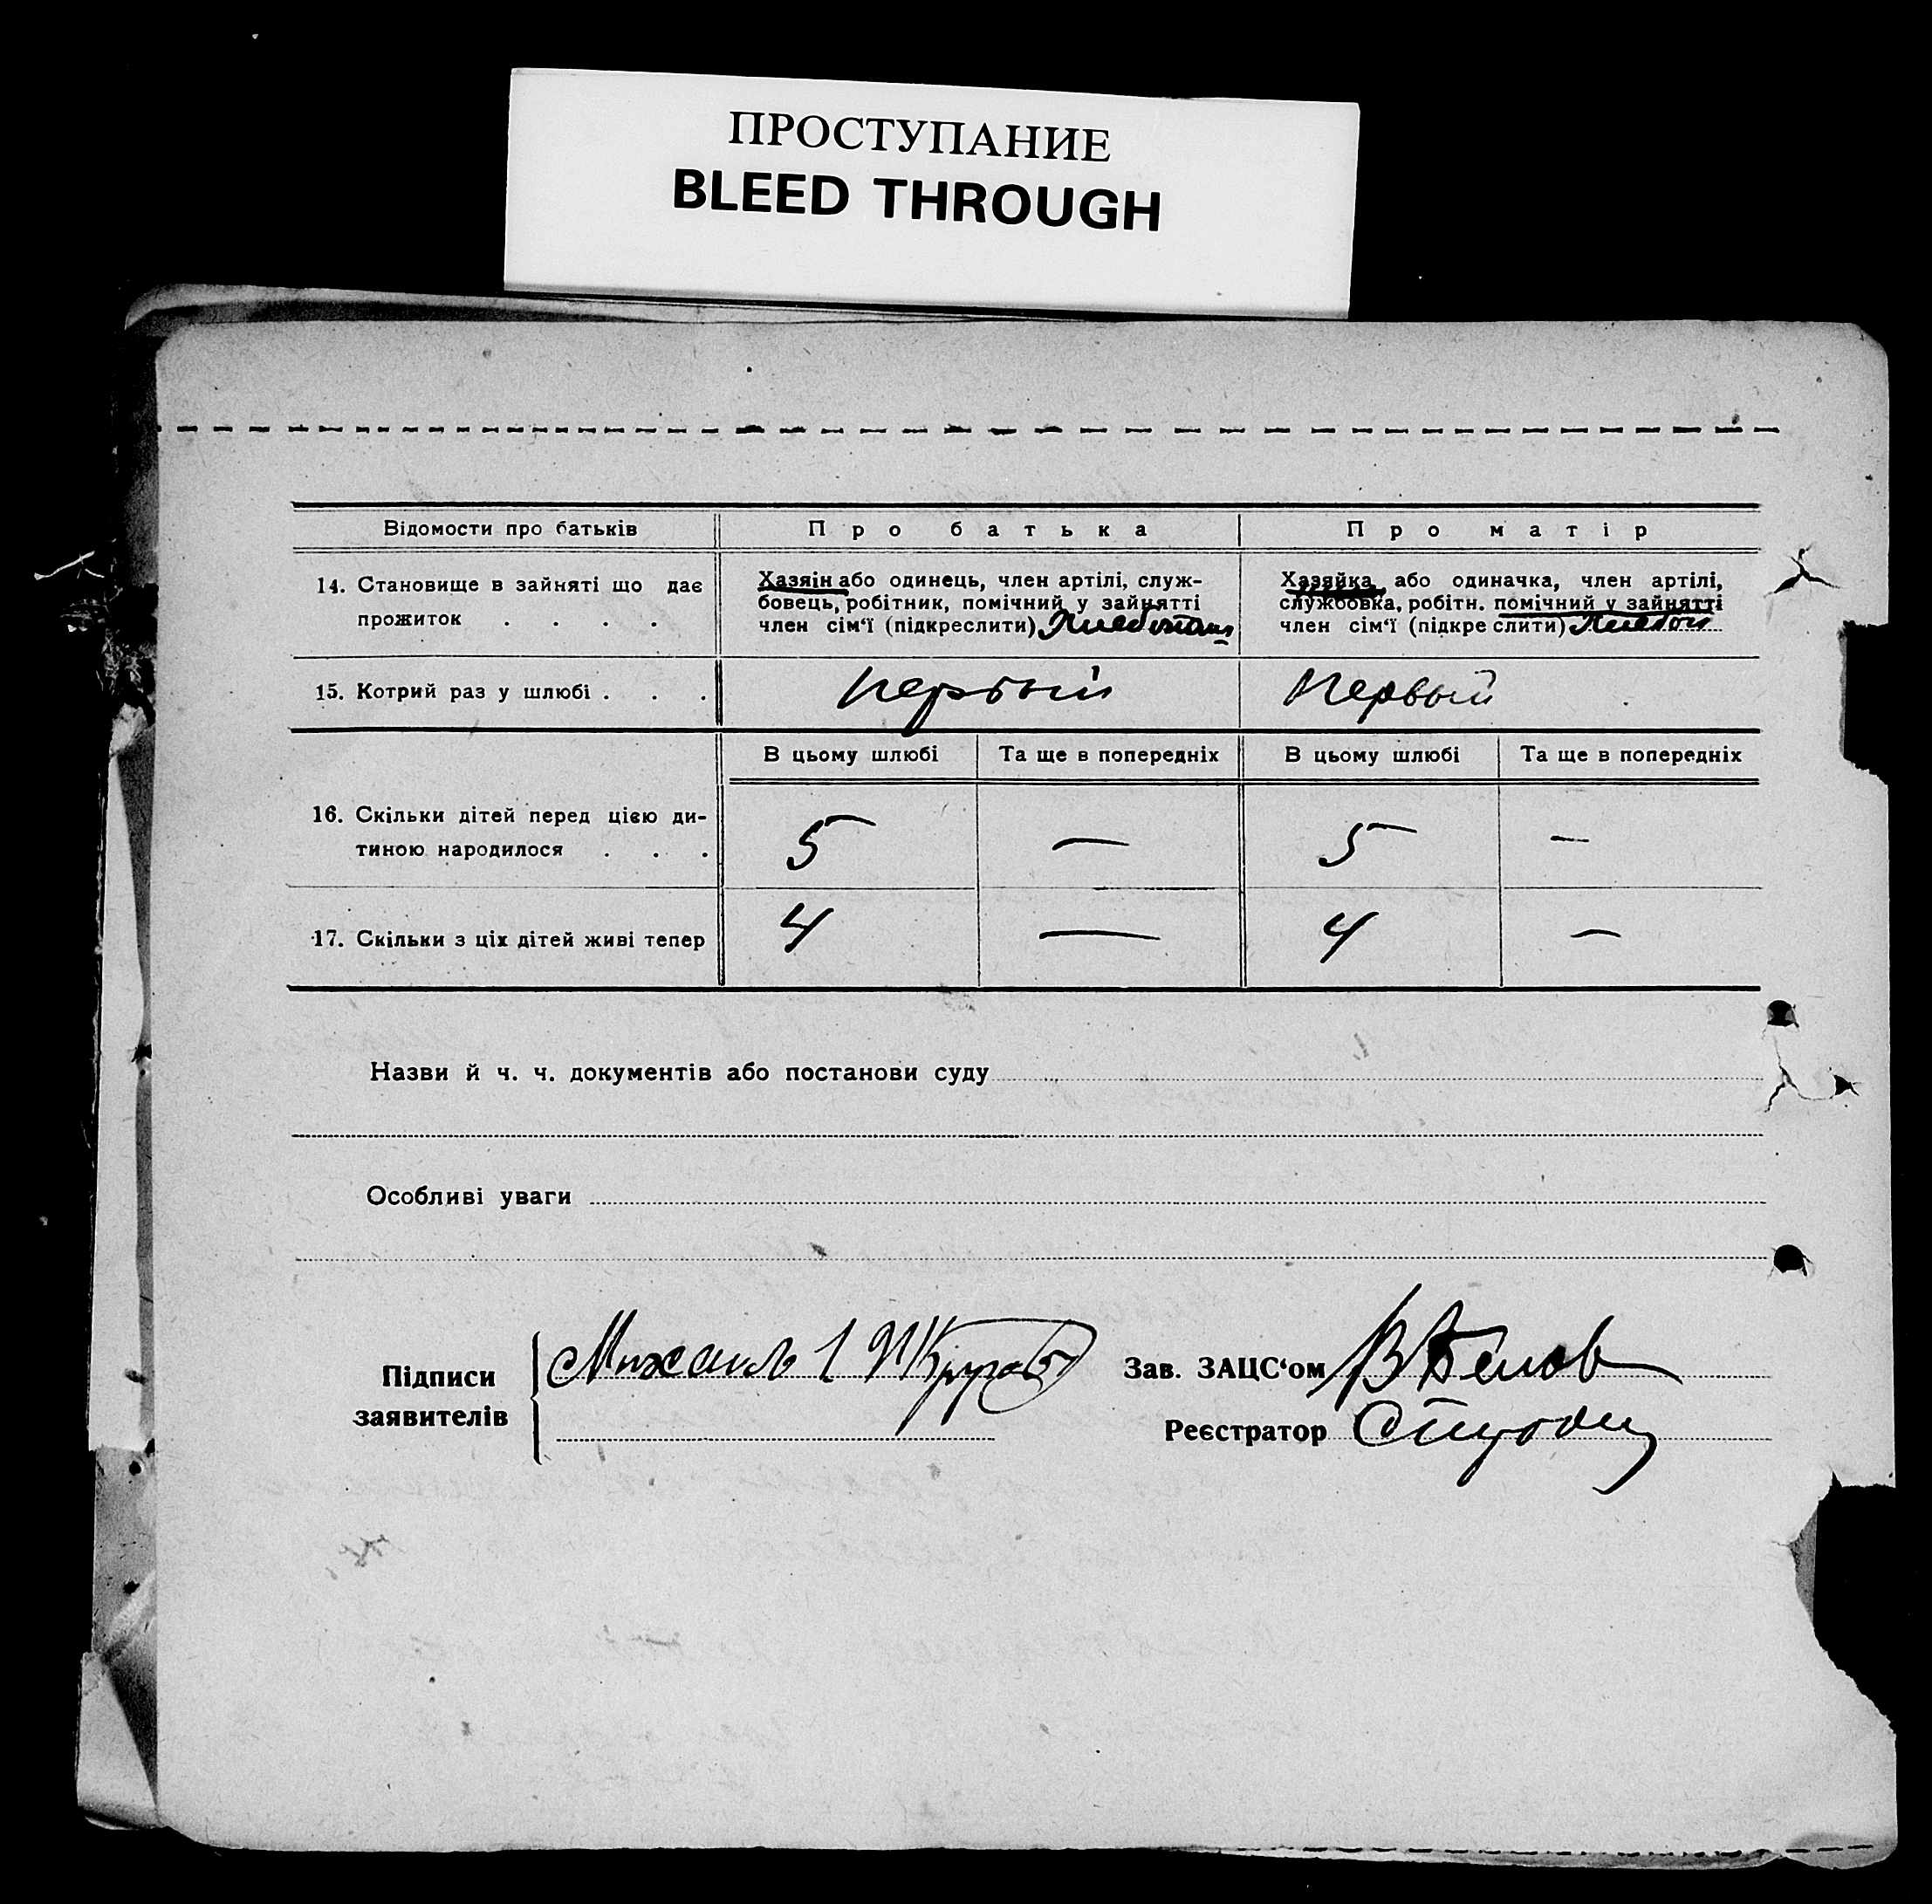 ПРОСТУПАНИЕ
BLEED THROUGH
Відомости про батьків
Про батька
Про матір
14. Становище в зайняті що дає
прожиток . . . .
Хазяін або одинець, член артілі, служ-
бовець, робітник, помічний у зайнятті
член сім‘ї (підкреслити)
Хазяйка або одиначка, член артілі,
службовка, робітн. помічний у зайнятті
член сім‘ї (підкреслити)
15. Котрий раз у шлюбі . . .
первый
первый
В цьому шлюбі
Та ще в попередніх
В цьому шлюбі
Та ще в попередніх
16. Скільки дітей перед цією ди-
тиною народилося . . .
5
—
5
—
17. Скільки з ціх дітей живі тепер
4
—
4
—
Назви й ч. ч. документів або постанови суду
Особливі уваги
Підписи
заявителів
Зав. ЗАЦС‘ом
Реєстратор